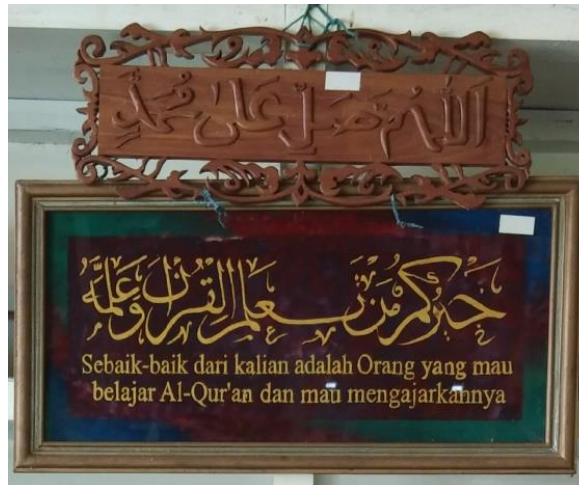 اللهم صل على محمد
خيركم من تعلم القرآن وعلمه
Sebaik-baik dari kalian adalah Orang yang mau
belajar Al-Qur'an dan mau mengajarkannya